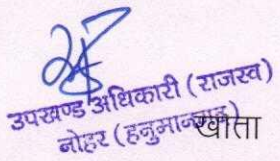 उपखण्ड अधिकारी (राजस्व)
नोहर (हनुमानगढ़)
खाता